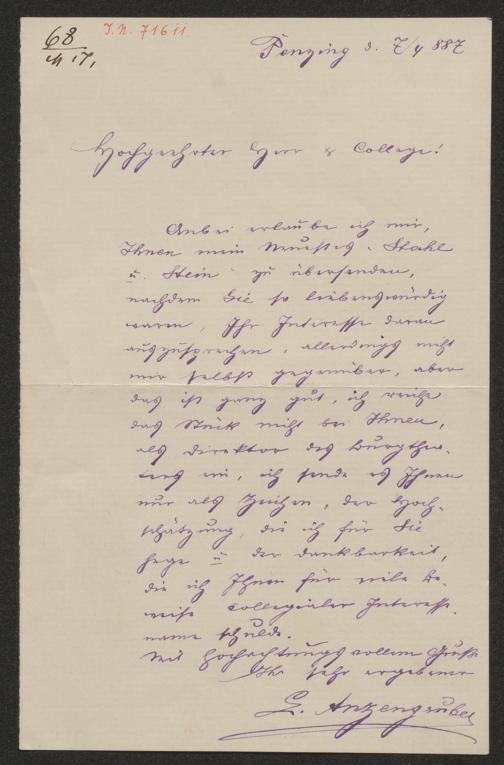 68
I.N. 71611
Penzing d. 7/4 887
Hochgeehrter Herr & College!
Anbei erlaube ich mir,
Ihnen mein Neuestes „Stahl
u. Stein" zu übersenden,
nachdem Sie so liebenswürdig
waren, Ihr Interesse daran
auszusprechen, allerdings nicht
mir selbst gegenüber, aber
das ist ganz gut, ich reiche
das Stück nicht bei Ihnen,
als Direktor des Burgthea-
ters ein, ich sende es Ihnen
nur als Zeichen, der Hoch-
schätzung, die ich für Sie
hege u der Dankbarkeit,
die ich Ihnen für viele Be-
weise collegialer Interesse-
name schulde.
Mit hochachtungsvollem Gruße
Ihr sehr ergebener
L. Anzengruber